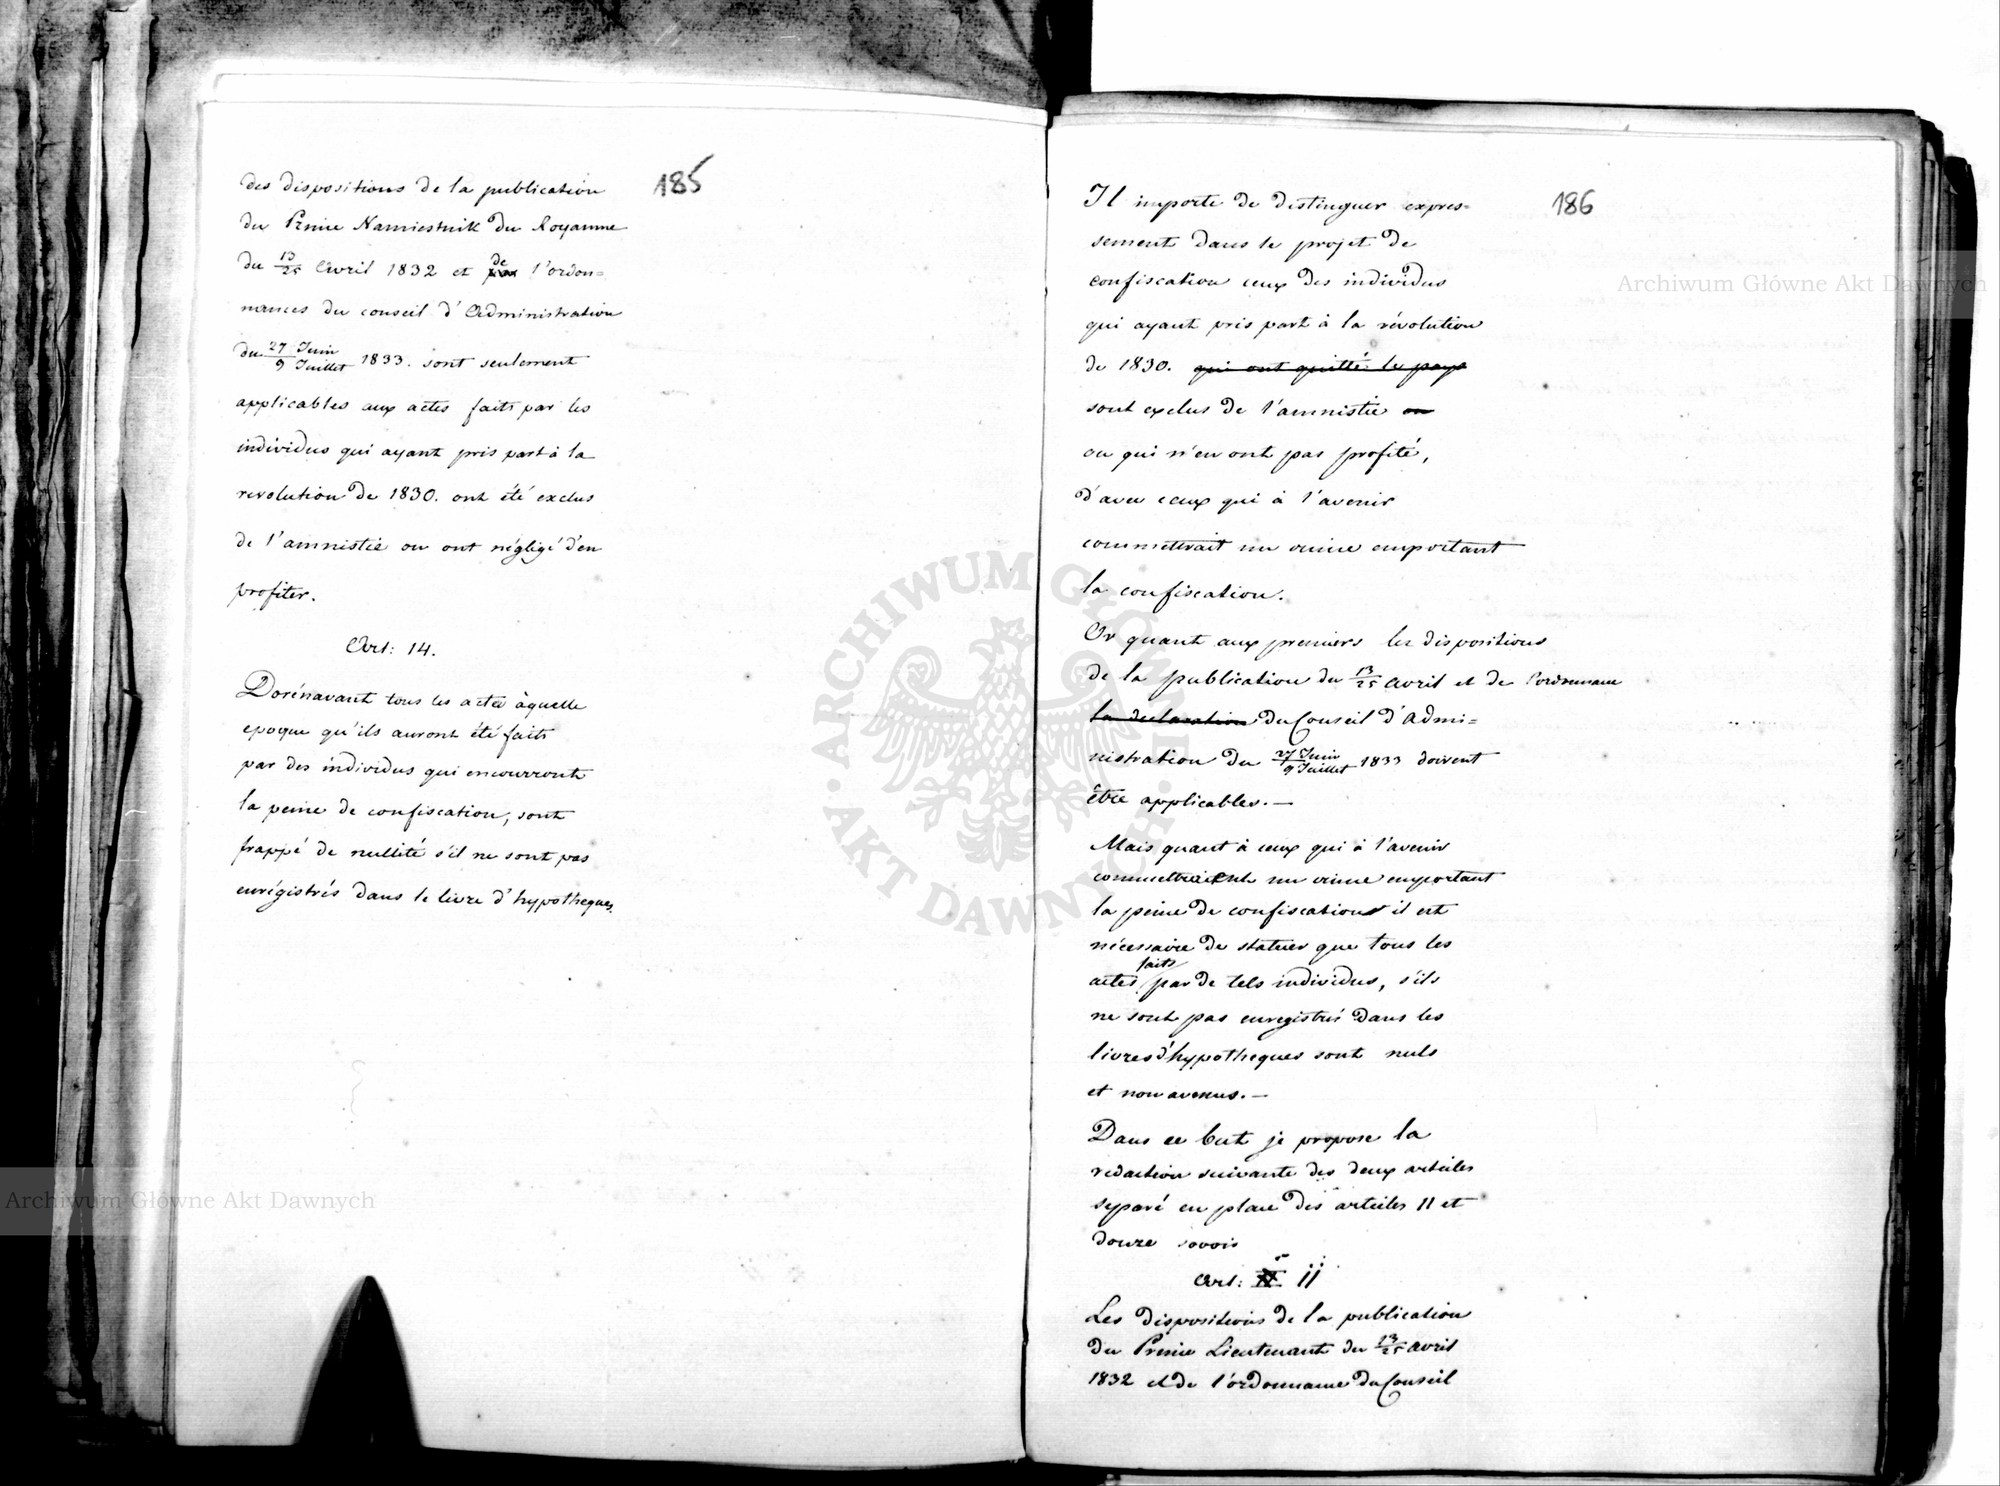 185
des dispositions de la publication
du Prince Namiestnik du Royaume
du 13/25 Avril 1832 et de l'ordon=
nances du conseil d'Administration
du 27 Juin/9 Juillet 1833. sont seulement
applicables aux actes faits par les
individus qui ayant pris part à la
revolution de 1830. ont été exclus
de l'amnistie ou ont négligé d'en
profiter.
Art: 14.
Dorénavant tous les actes àquelle
epoque qu'ils auront été faits
par des individus qui encourront
la peine de confiscation, sont
frappé de nullité s'il ne sont pas
enrégistrés dans le livre d'hypotheques.
186
Il importe de distinguer expres=
sement dans le projet de
confiscation ceux des individus
qui ayant pris part à la révolution
de 1830. qui ont quitté le pays
sont exclus de l'amnistie ou
ou qui n'en ont pas profité,
d'avec ceux qui à l'avenir
commettrait un crime emportant
la confiscation.
Or quant aux premiers les dispositions
de la publication du 13/25 avril et de l'ordonnance
la declaration du Conseil d'Admi=
nistration du 27 Juin/9 Juillet 1833 doivent
être applicables.—
Mais quant à ceux qui à l'avenir
commettraient un crime emportant
la peine de confiscation il est
nécessaire de statuer que tous les
actes faits par de tels individus, s'ils
ne sont pas enregistrés dans les
livres d'hypotheques sont nuls
et non avenus.—
Dans ce but je propose la
redaction suivante des deux articles
separé en place des articles 11 et
douze savoir
Art: 11
Les dispositions de la publication
du Prince Lieutenant du 13/25 avril
1832 et de l'ordonnance du Conseil
Archiwum Główne Akt Dawnych
Archiwum Główne Akt Dawnych
ARCHIWUM GŁÓWNE AKT DAWNYCH